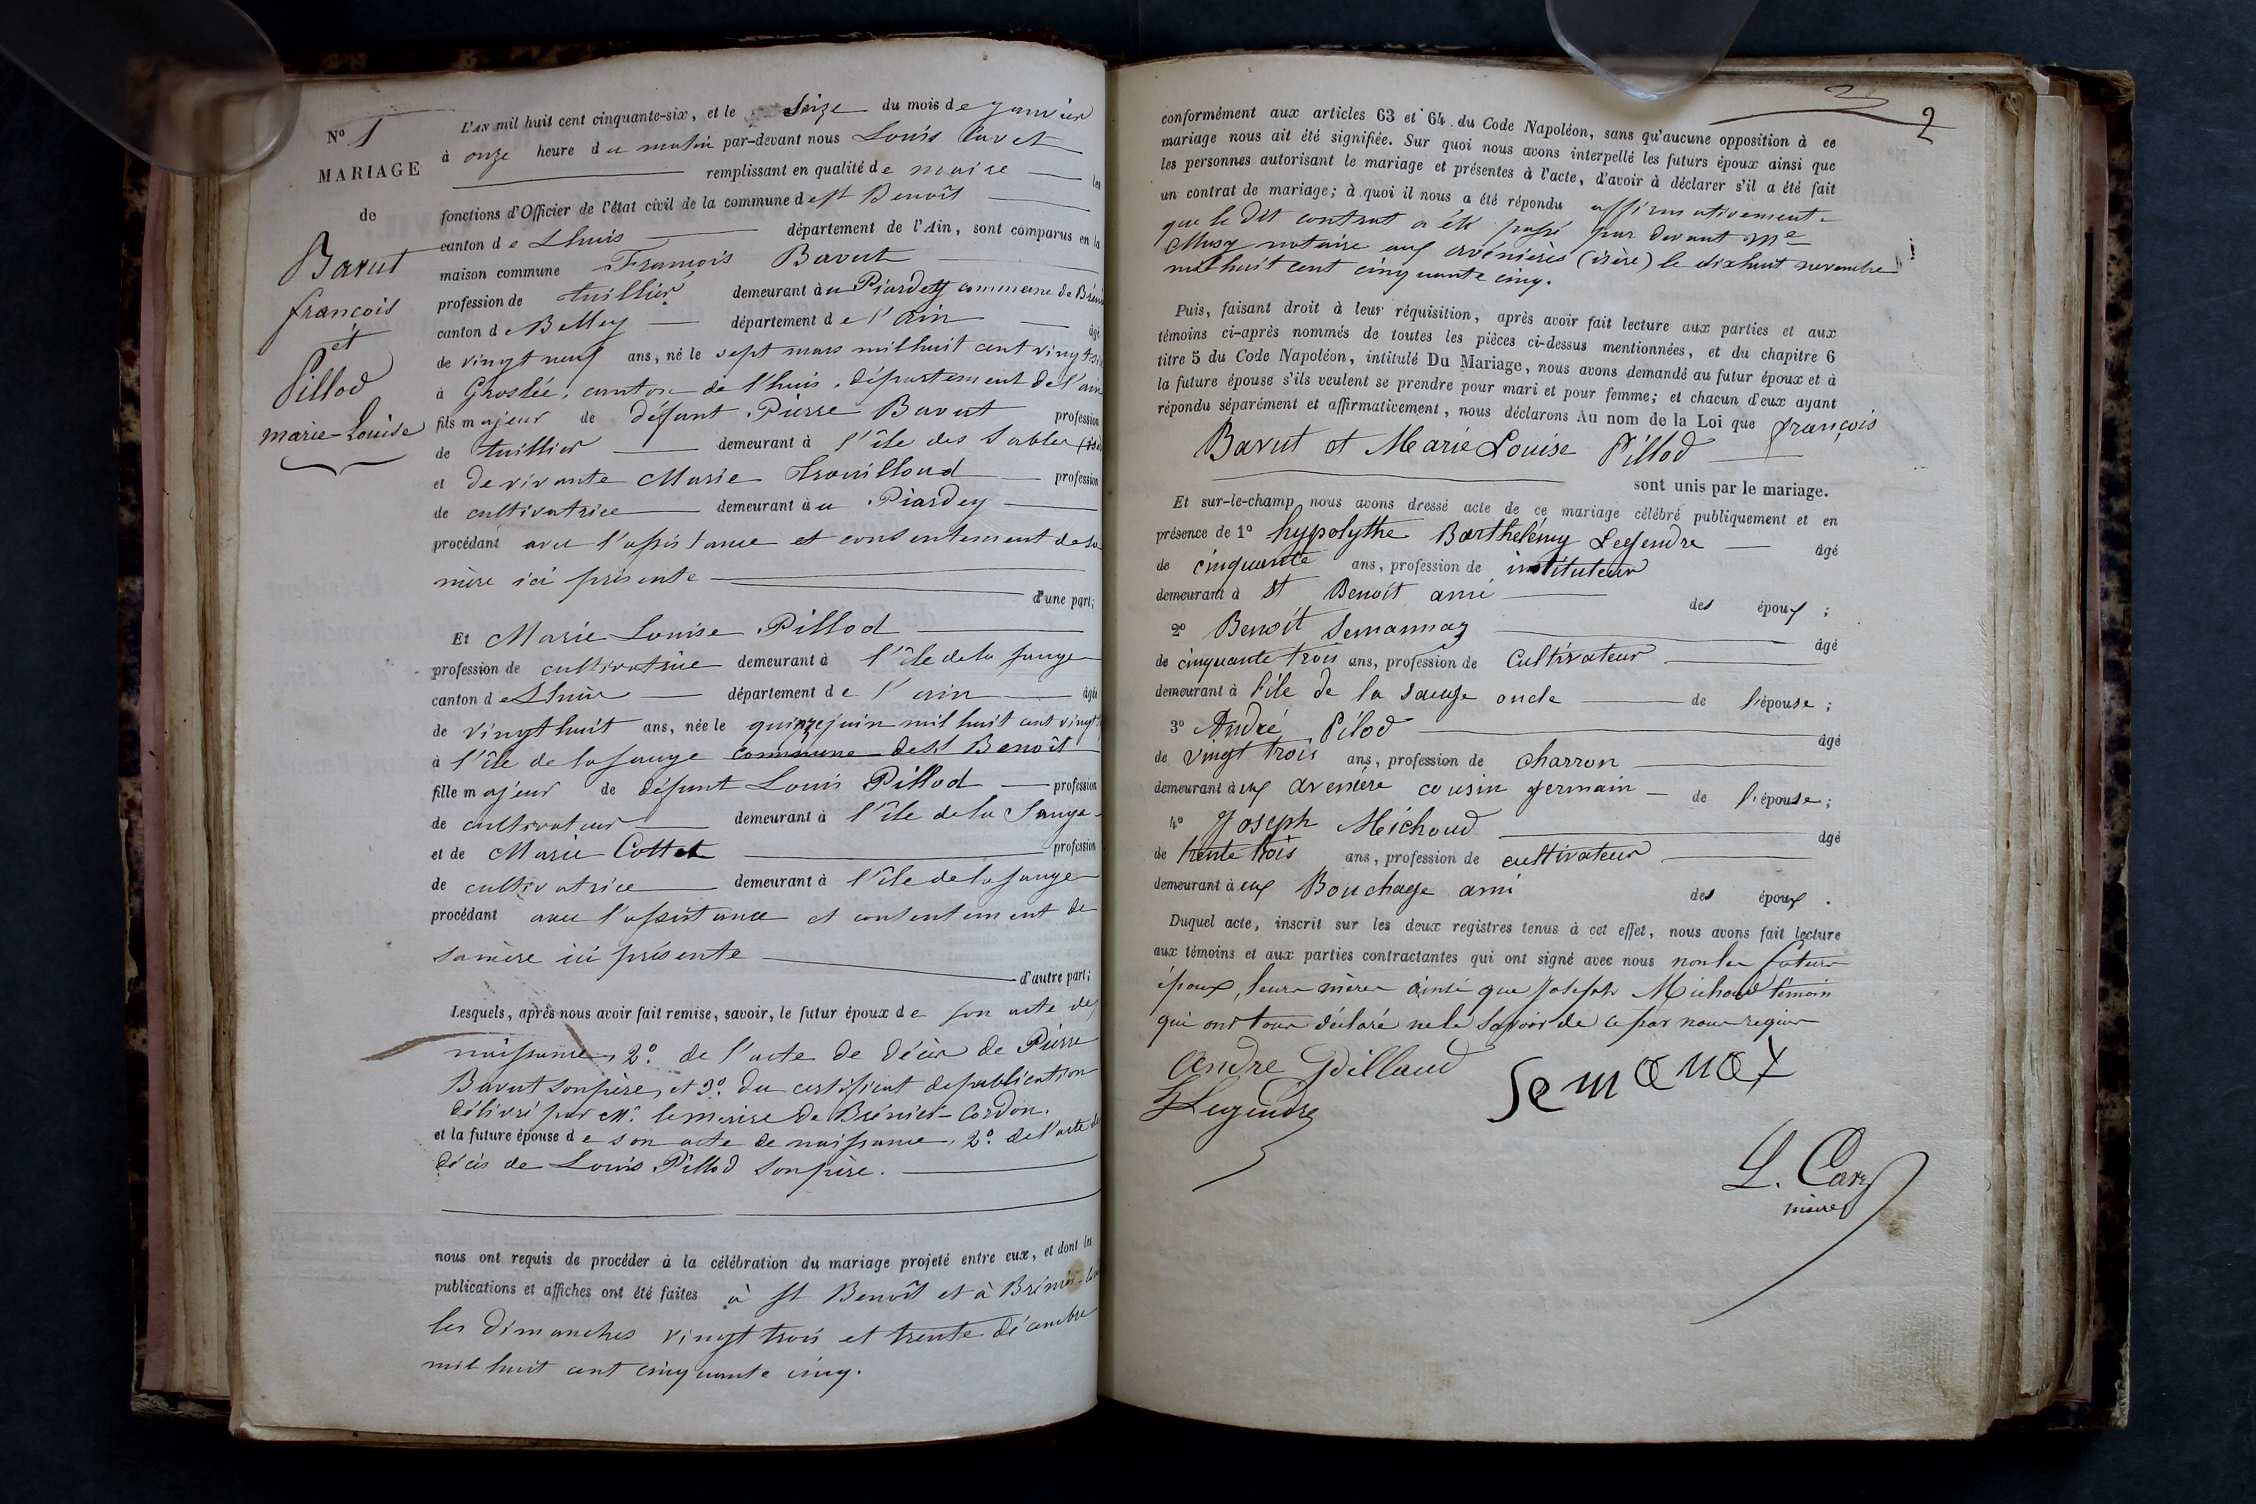 N° 1
MARIAGE
de
Bavut
françois
et
Pillod
marie-Louise
L'AN mil huit cent cinquante-six, et le Seize du mois de janvier
à onze heure du matin par-devant nous Louis Cavet
remplissant en qualité de maire les
fonctions d'Officier de l'état civil de la commune de St Benoît
canton de Lhuis département de l'Ain, sont comparus en la
maison commune François Bavut
profession de tuillier demeurant àu Piardey commune de
canton de Belley département de l'ain âgé
de vingt neuf ans, né le sept mars mil huit cent vingt
à Groslée, canton de l'huis, département de l'ain
fils majeur de défunt Pierre Bavut profession
de tuillier demeurant à l'île des Sables
et de vivante Marie Trouilloud profession
de cultivatrice demeurant àu Piardey
procédant avec l'assistance et consentement de sa
mère ici présente
d'une part;
Et Marie Louise Pillod
profession de cultivatrice demeurant à l'île de la sauge
canton de Lhuis département de l'ain âgée
de vingt huit ans, née le quinze juin mil huit cent vingt
à l'île de la sauge commune de St Benoît
fille majeur de défunt Louis Pillod profession
de cultivateur demeurant à l'île de la Sauge
et de Marie Cottet profession
de cultivatrice demeurant à l'île de la sauge
procédant avec l'assistance et consentement de
sa mère ici présente
d'autre part;
Lesquels, après nous avoir fait remise, savoir, le futur époux de son acte de
naissance, 2° de l'acte de décès de Pierre
Bavut son père, et 3° du certificat de publication
délivré par Mr le maire de Brénier-Cordon.
et la future épouse de son acte de naissance, 2° de l'acte de
décès de Louis Pillod son père.
nous ont requis de procéder à la célébration du mariage projeté entre eux, et dont les
publications et affiches ont été faites à St Benoît et à
les dimanches vingt trois et trente décembre
mil huit cent cinquante cinq.
2
conformément aux articles 63 et 64 du Code Napoléon, sans qu'aucune opposition à ce
mariage nous ait été signifiée. Sur quoi nous avons interpellé les futurs époux ainsi que
les personnes autorisant le mariage et présentes à l'acte, d'avoir à déclarer s'il a été fait
un contrat de mariage; à quoi il nous a été répondu affirmativement
que le dit contrat a été passé par devant Me
notaire aux avénières (isère) le dix huit novembre
mil huit cent cinquante cinq.
Puis, faisant droit à leur réquisition, après avoir fait lecture aux parties et aux
témoins ci-après nommés de toutes les pièces ci-dessus mentionnées, et du chapitre 6
titre 5 du Code Napoléon, intitulé Du Mariage, nous avons demandé au futur époux et à
la future épouse s'ils veulent se prendre pour mari et pour femme; et chacun d'eux ayant
répondu séparément et affirmativement, nous déclarons Au nom de la Loi que françois
Bavut et Marie Louise Pillod
sont unis par le mariage.
Et sur-le-champ nous avons dressé acte de ce mariage célébré publiquement et en
présence de 1° hypolythe Barthelémy Legendre âgé
de cinquante ans, profession de instituteur
demeurant à St Benoît ami des époux ;
2° Benoît Semannaz âgé
de cinquante trois ans, profession de Cultivateur
demeurant à l'île de la sauge oncle de l'épouse ;
3° André Pilod âgé
de vingt trois ans, profession de charron
demeurant à ux avenière cousin germain de l'épouse ;
4° Joseph Michoud âgé
de trente trois ans, profession de cultivateur
demeurant à ux Bouchage ami des époux .
Duquel acte, inscrit sur les deux registres tenus à cet effet, nous avons fait lecture
aux témoins et aux parties contractantes qui ont signé avec nous non les futurs
époux, leurs mères ainsi que Joseph Michoud témoin
qui ont tous déclaré ne le savoir de ce par nous requis
Andre Pillaud
Semanaz
Legendre
L. Cavet
maire